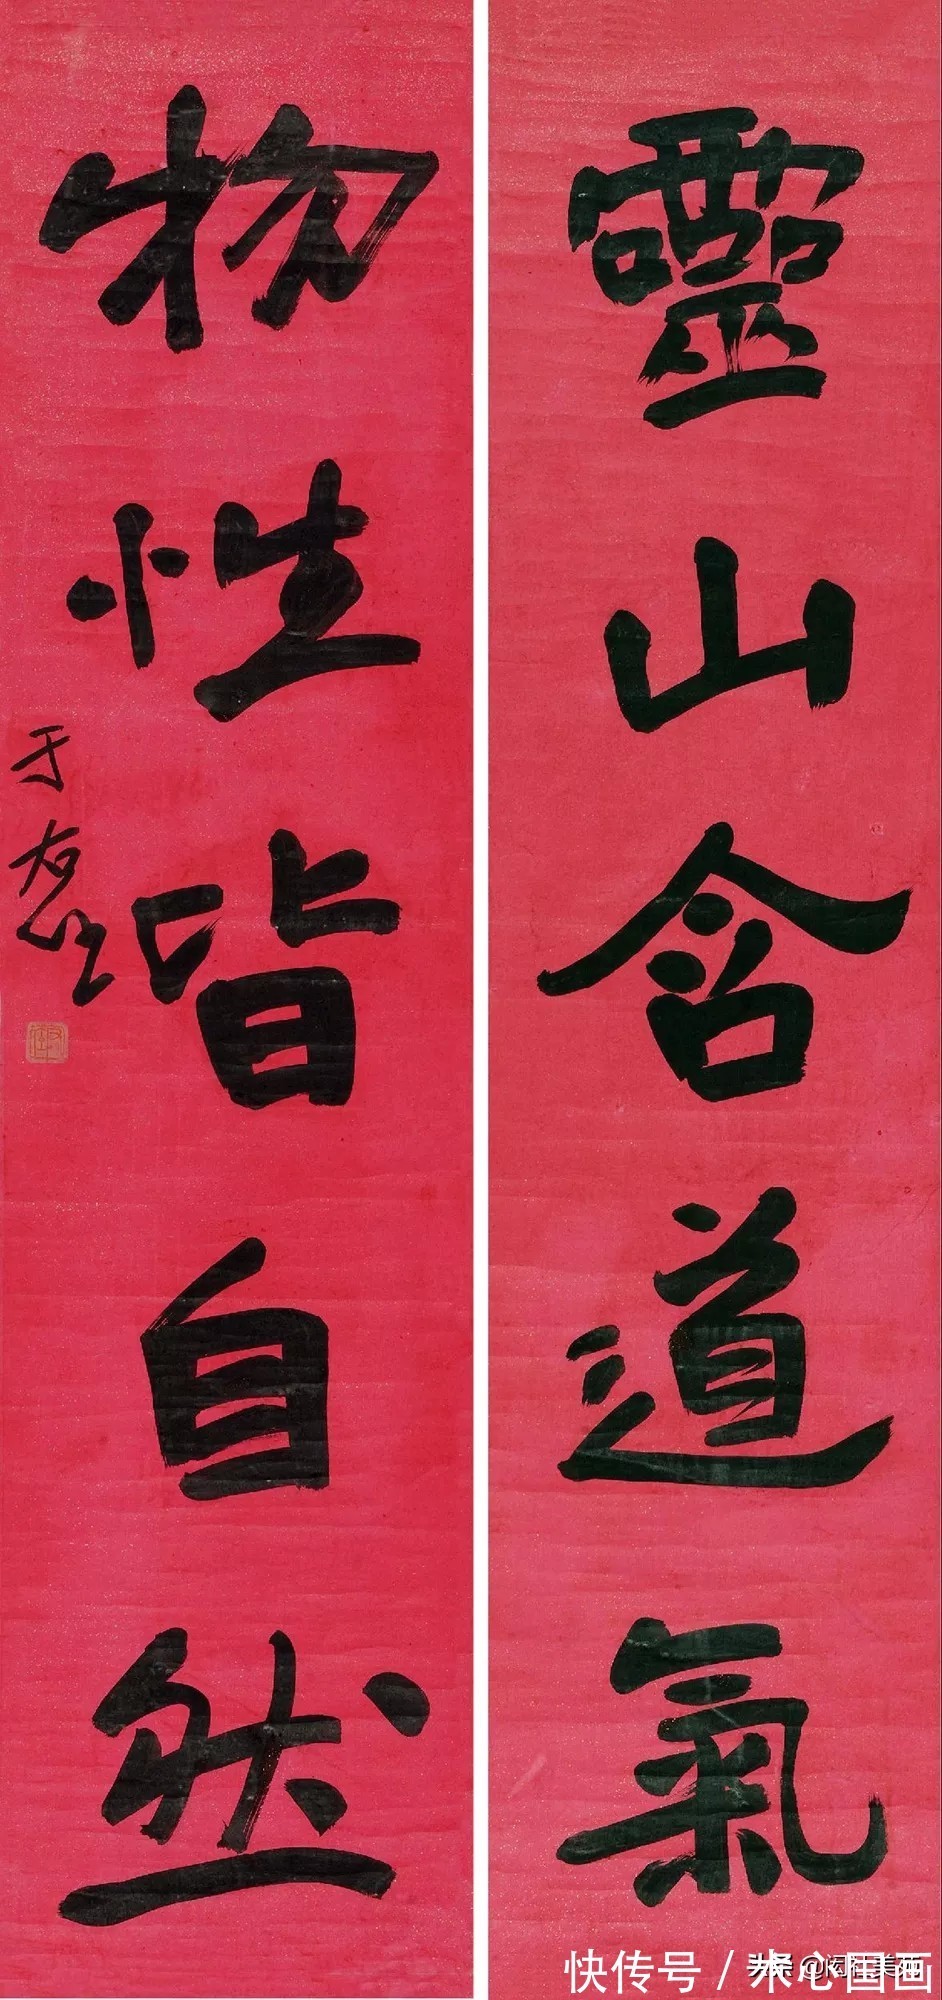 靈山含道氣
物性皆自然
于右任
快传号/木心国画